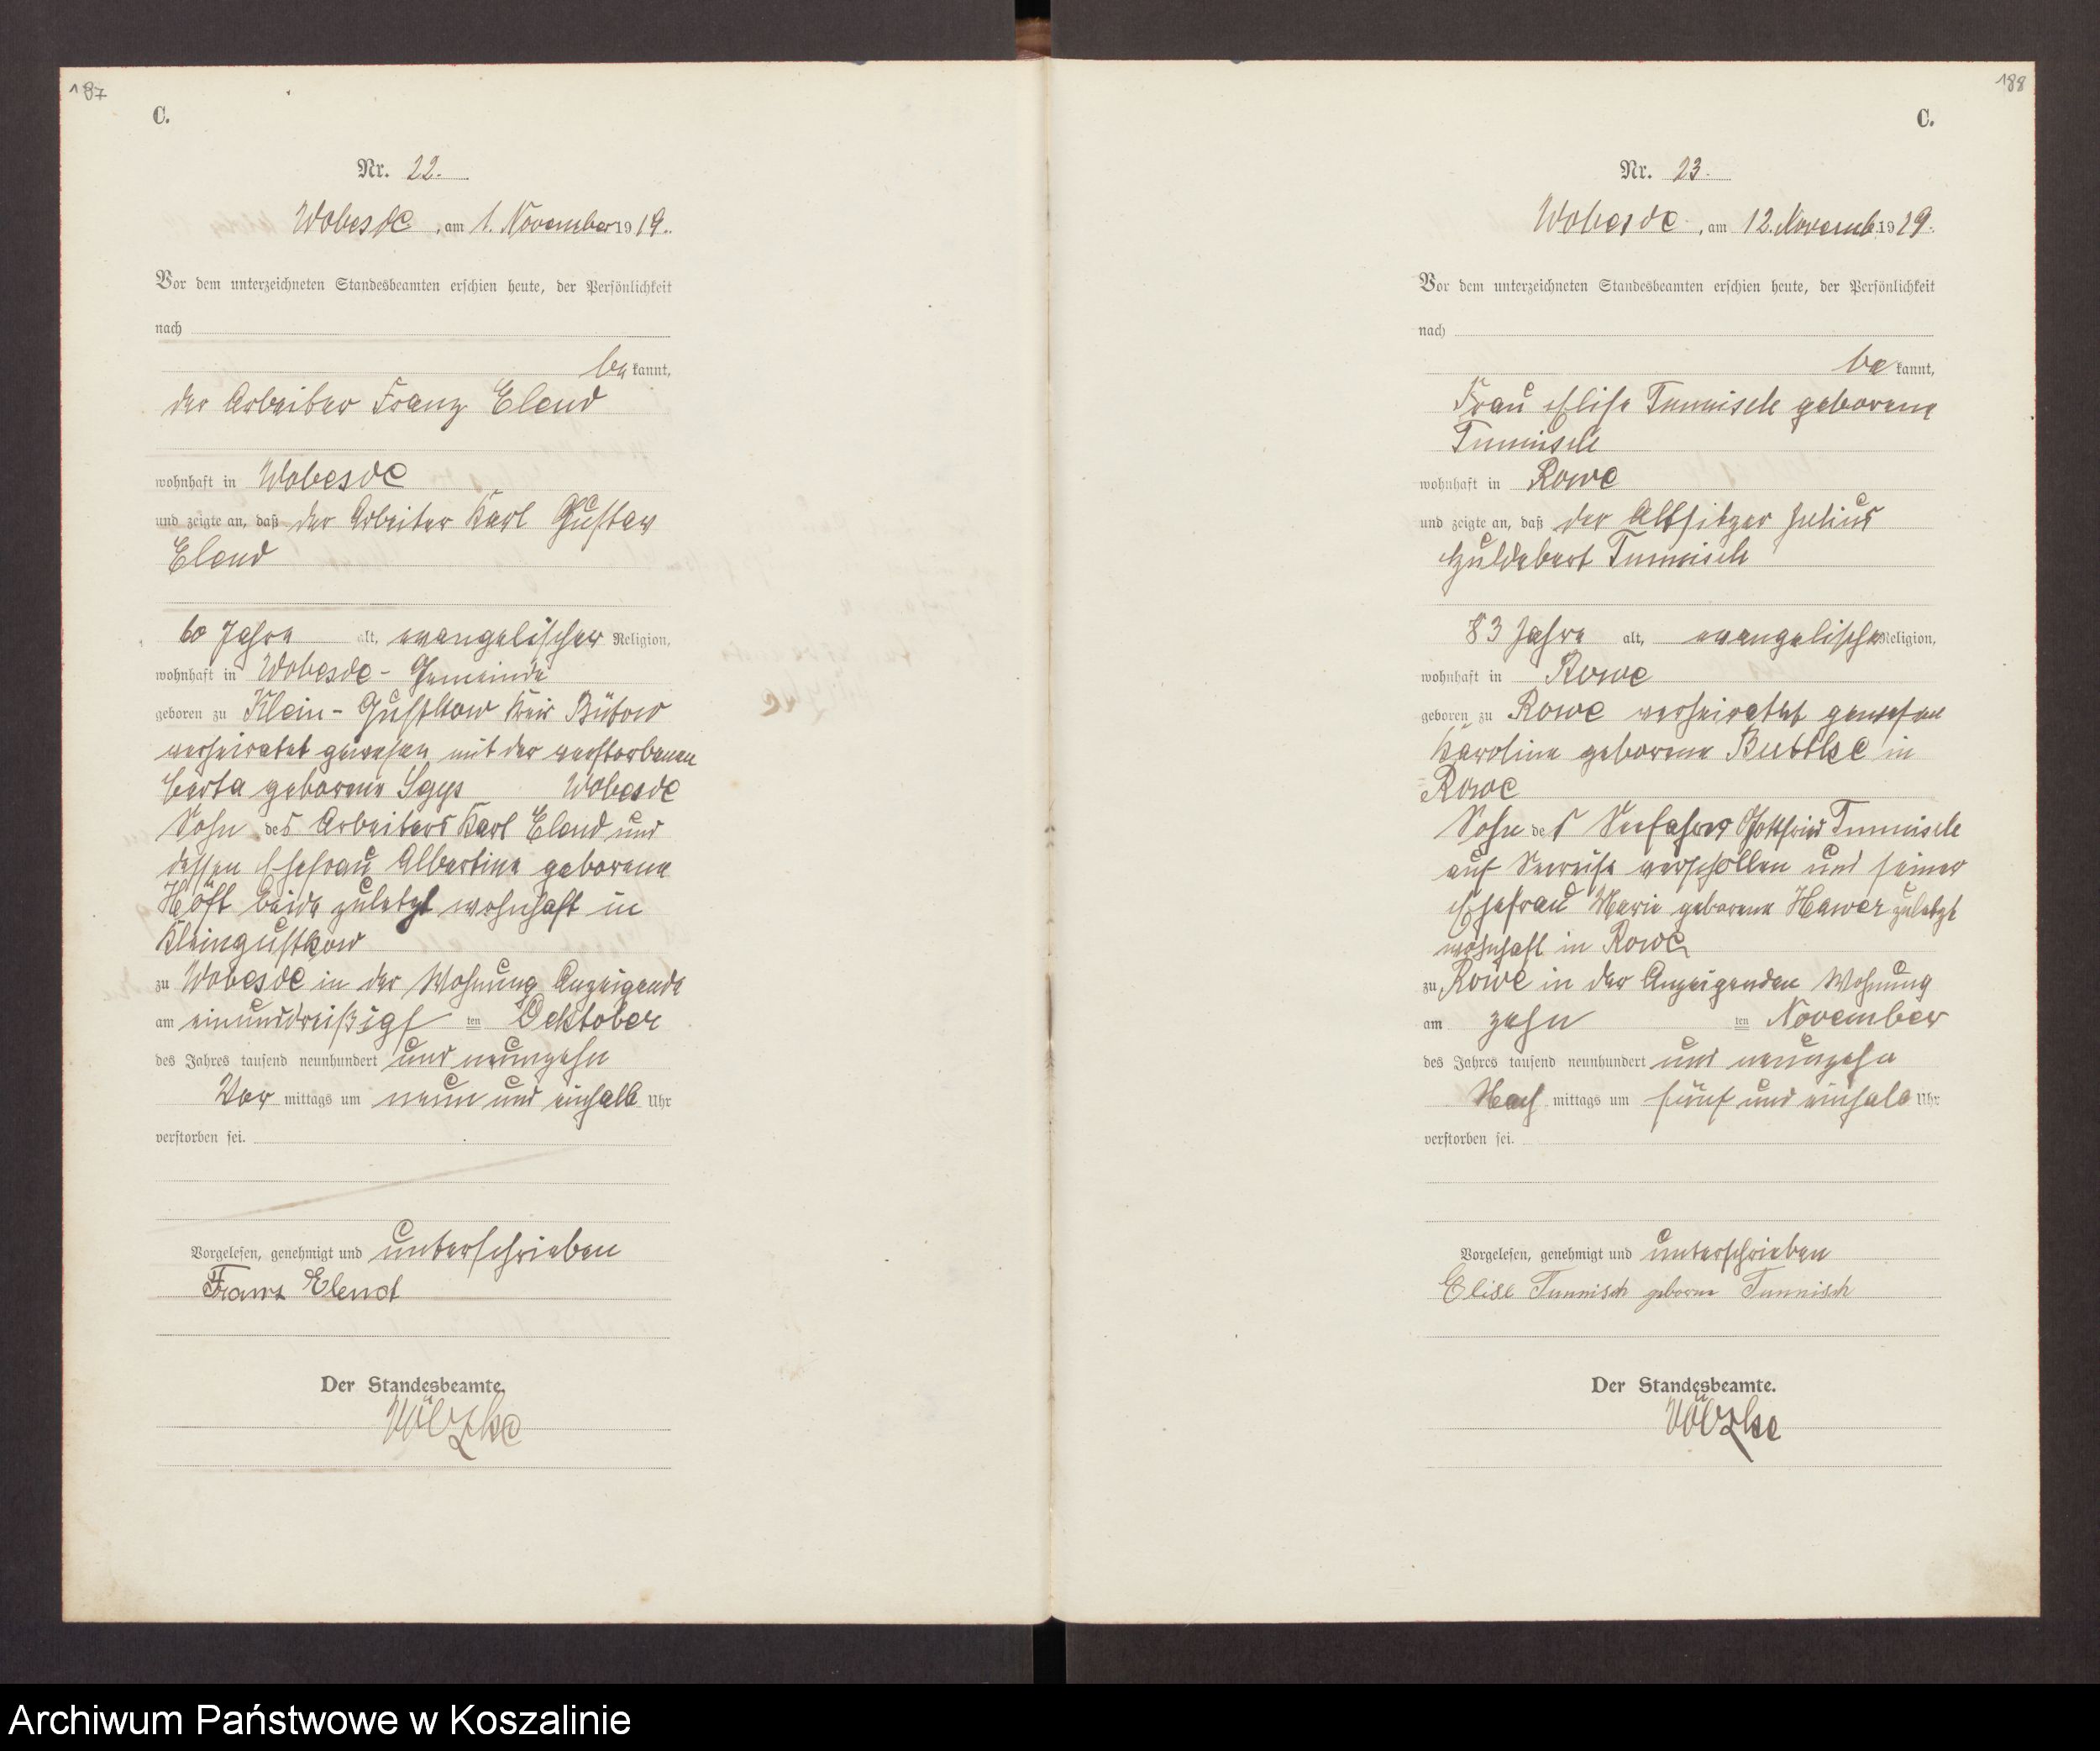 187
C.
Nr. 22.
Wobesde, am 1. November 1919.
Vor dem unterzeichneten Standesbeamten erschien heute, der Persönlichkeit
nach
bekannt,
der Arbeiter Franz Elend
wohnhaft in Wobesde
und zeigte an, daß der Arbeiter Karl Gustav
Elend
60 Jahre alt, evangelischer Religion,
wohnhaft in Wobesde - Gemeinde
geboren zu Klein-Gustkow Kreis Bütow
verheiratet gewesen mit der verstorbenen
Berta geborene Wobesde
Sohn des Arbeiters Karl Elend und
dessen Ehefrau Albertine geborene
Höft beide zuletzt wohnhaft in
Kleingustkow
zu Wobesde in der Wohnung Anzeigende
am einunddreißigs ten Oektober
des Jahres tausend neunhundert und neunzehn
Vor mittags um neun und einhalb Uhr
verstorben sei.
Vorgelesen, genehmigt und unterschrieben
Franz Elend
Der Standesbeamte.
Völzke
188
C.
Nr. 23.
Wobesde, am 12. Novemb. 1919.
Vor dem unterzeichneten Standesbeamten erschien heute, der Persönlichkeit
nach
bekannt,
Frau Elise Tummisch geborene
Tummisch
wohnhaft in Rowe
und zeigte an, daß der Altsitzer Julius
Huldebert Tummisch
83 Jahre alt, evangelischer Religion,
wohnhaft in Rowe
geboren zu Rowe verheirathet gewesen
Karoline geborene Buttke in
Rowe
Sohn des Seefahrer Gottfried Tummisch
auf Seereise verschollen und seiner
Ehefrau Marie geborene Hawer zuletzt
wohnhaft in Rowe
zu Rowe in der Anzeigenden Wohnung
am zehn ten November
des Jahres tausend neunhundert und neunzehn
Nach mittags um fünf und einhalb Uhr
verstorben sei.
Vorgelesen, genehmigt und unterschrieben
Elise Tummisch geborne Tummisch
Der Standesbeamte.
Völzke
Archiwum Państwowe w Koszalinie